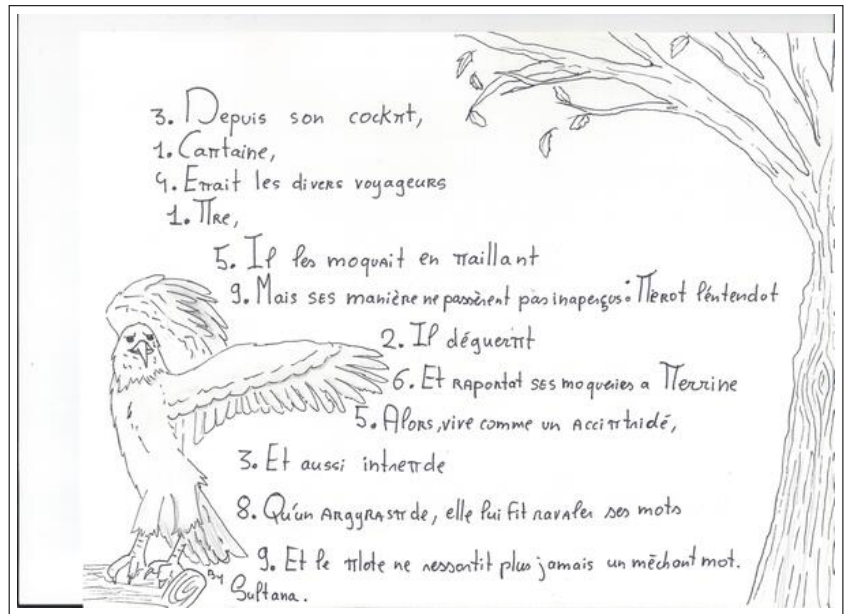 3. Depuis son cockπt,
1. Caπtaine,
4. Eπait les divers voyageurs
1. πre,
5. Il les moquait en πaillant
9. Mais ses manière ne passèrent pas inaperçus : πerot l'entendot
2. Il déguerπt
6. Et rapportat ses moqueries a πerrine
5. Alors, vive comme un acciπtridé,
3. Et aussi intreπde
8. Qu'un Argyrasπde, elle lui fit ravaler ses mots
9. Et le πlote ne ressortit plus jamais un méchant mot.
By Sultana.